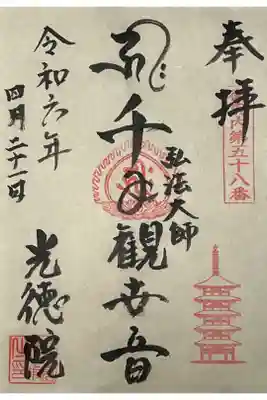 奉拝
内第五十八番
弘法大師
千手觀世音
令和六年
四月二十一日
光徳院